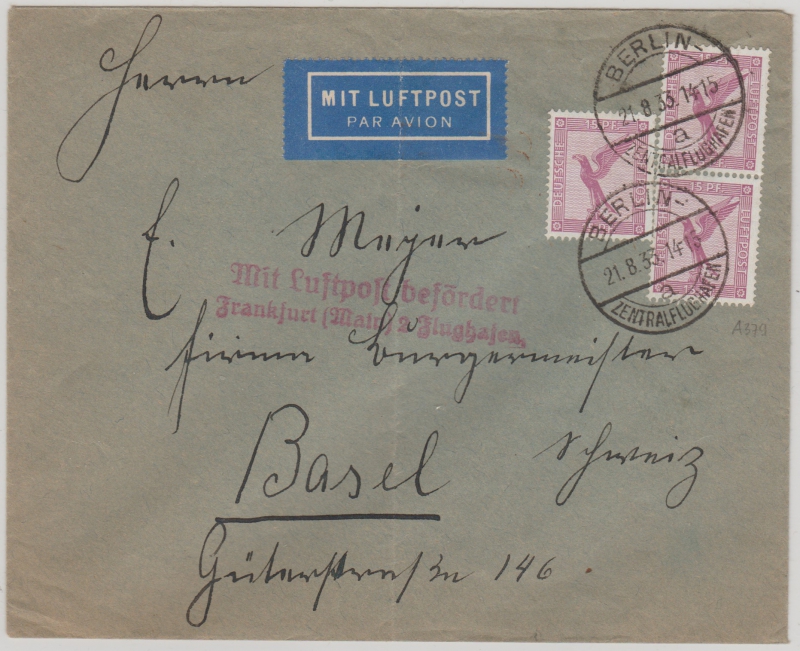 Herrn
MIT LUFTPOST
PAR AVION
BERLIN-
21.8.33.14-15
a
ZENTRALFLUGHAFEN
15 PF.
DEUTSCHE
LUFTPOST
15 PF.
LUFTPOST
15 PF.
LUFTPOST
BERLIN-
21.8.33.14-15
a
ZENTRALFLUGHAFEN
E. Meyer
Mit Luftpost befördert
Frankfurt (Main) 2 Flughafen.
A379
Firma Bürgermeister
Basel Schweiz
Güterstraße 146.